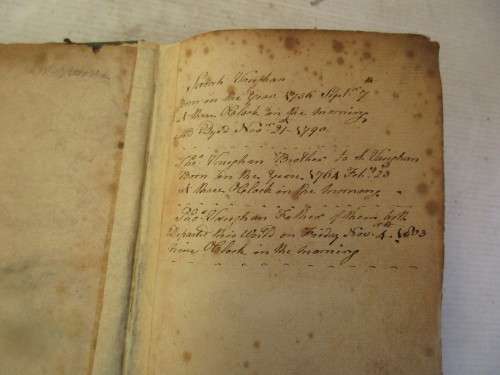 Vaughan
Born in the Year 1756 Sept.r 7th
at three O Clock in the Morning
and Dyed Nov.r 21st 1790
Tho.s Vaughan Brother to S. Vaughan
Born in the Year 1764 Feb.y 23
at three O Clock in the Morning
Tho.s Vaughan Father of them both
Departed this World on Friday Nov.r 4th 1803
nine O Clock in the Morning